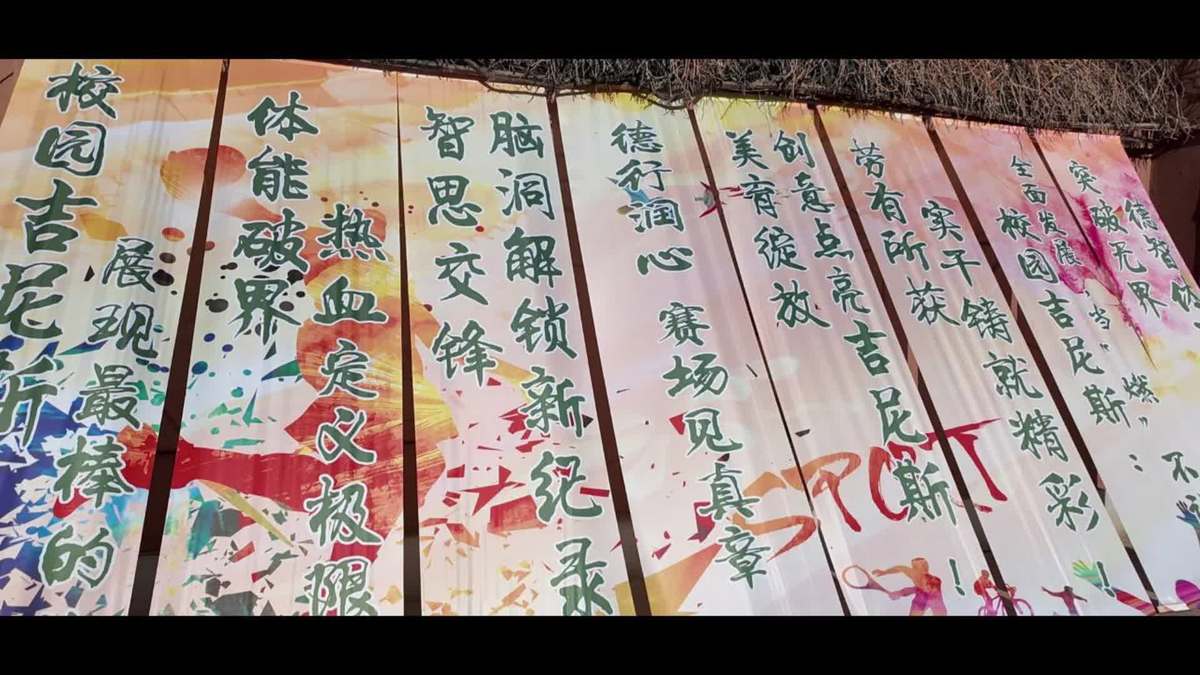 校园吉尼斯
展现最棒的
体能破界
热血定义极限
智思交锋
脑洞解锁新纪录
德行润心 赛场见真章
美育绽放
创意点亮吉尼斯！
劳有所获
实干铸就精彩！
校园吉尼斯：
全面发展“当”燃”不
突破无界
德智体
SPORT